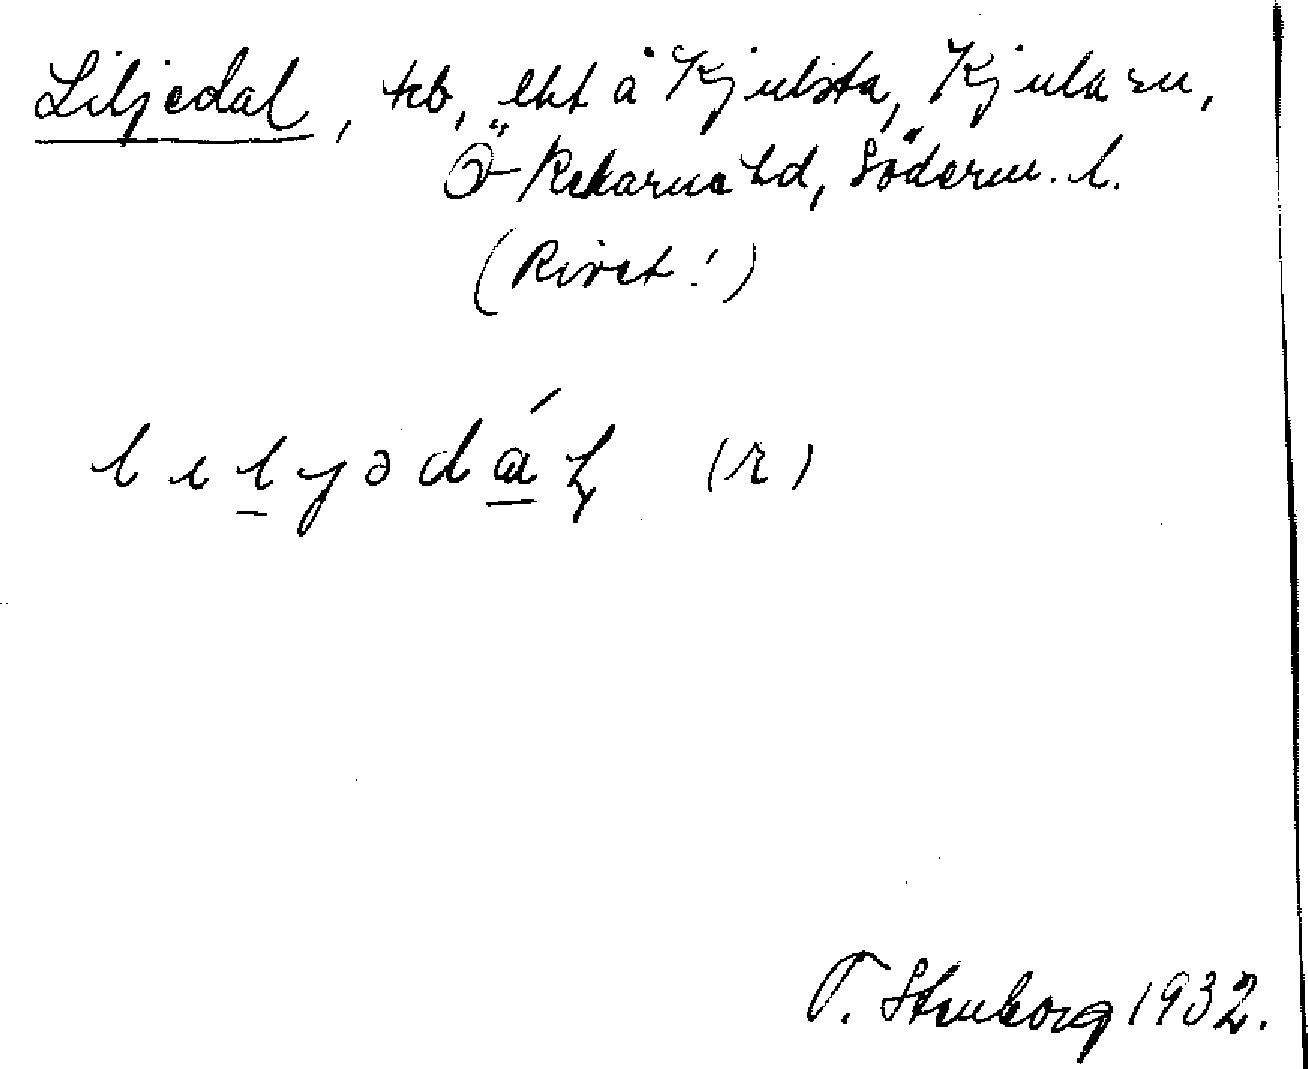 Liljedal, tcb, lht å Kjulsta, Kjula sn,
Ö-Rekarne hd, Söderm. l.
(Rivet!)
lıl̲yədá̲ḷ (r)
T. Stenborg 1932.